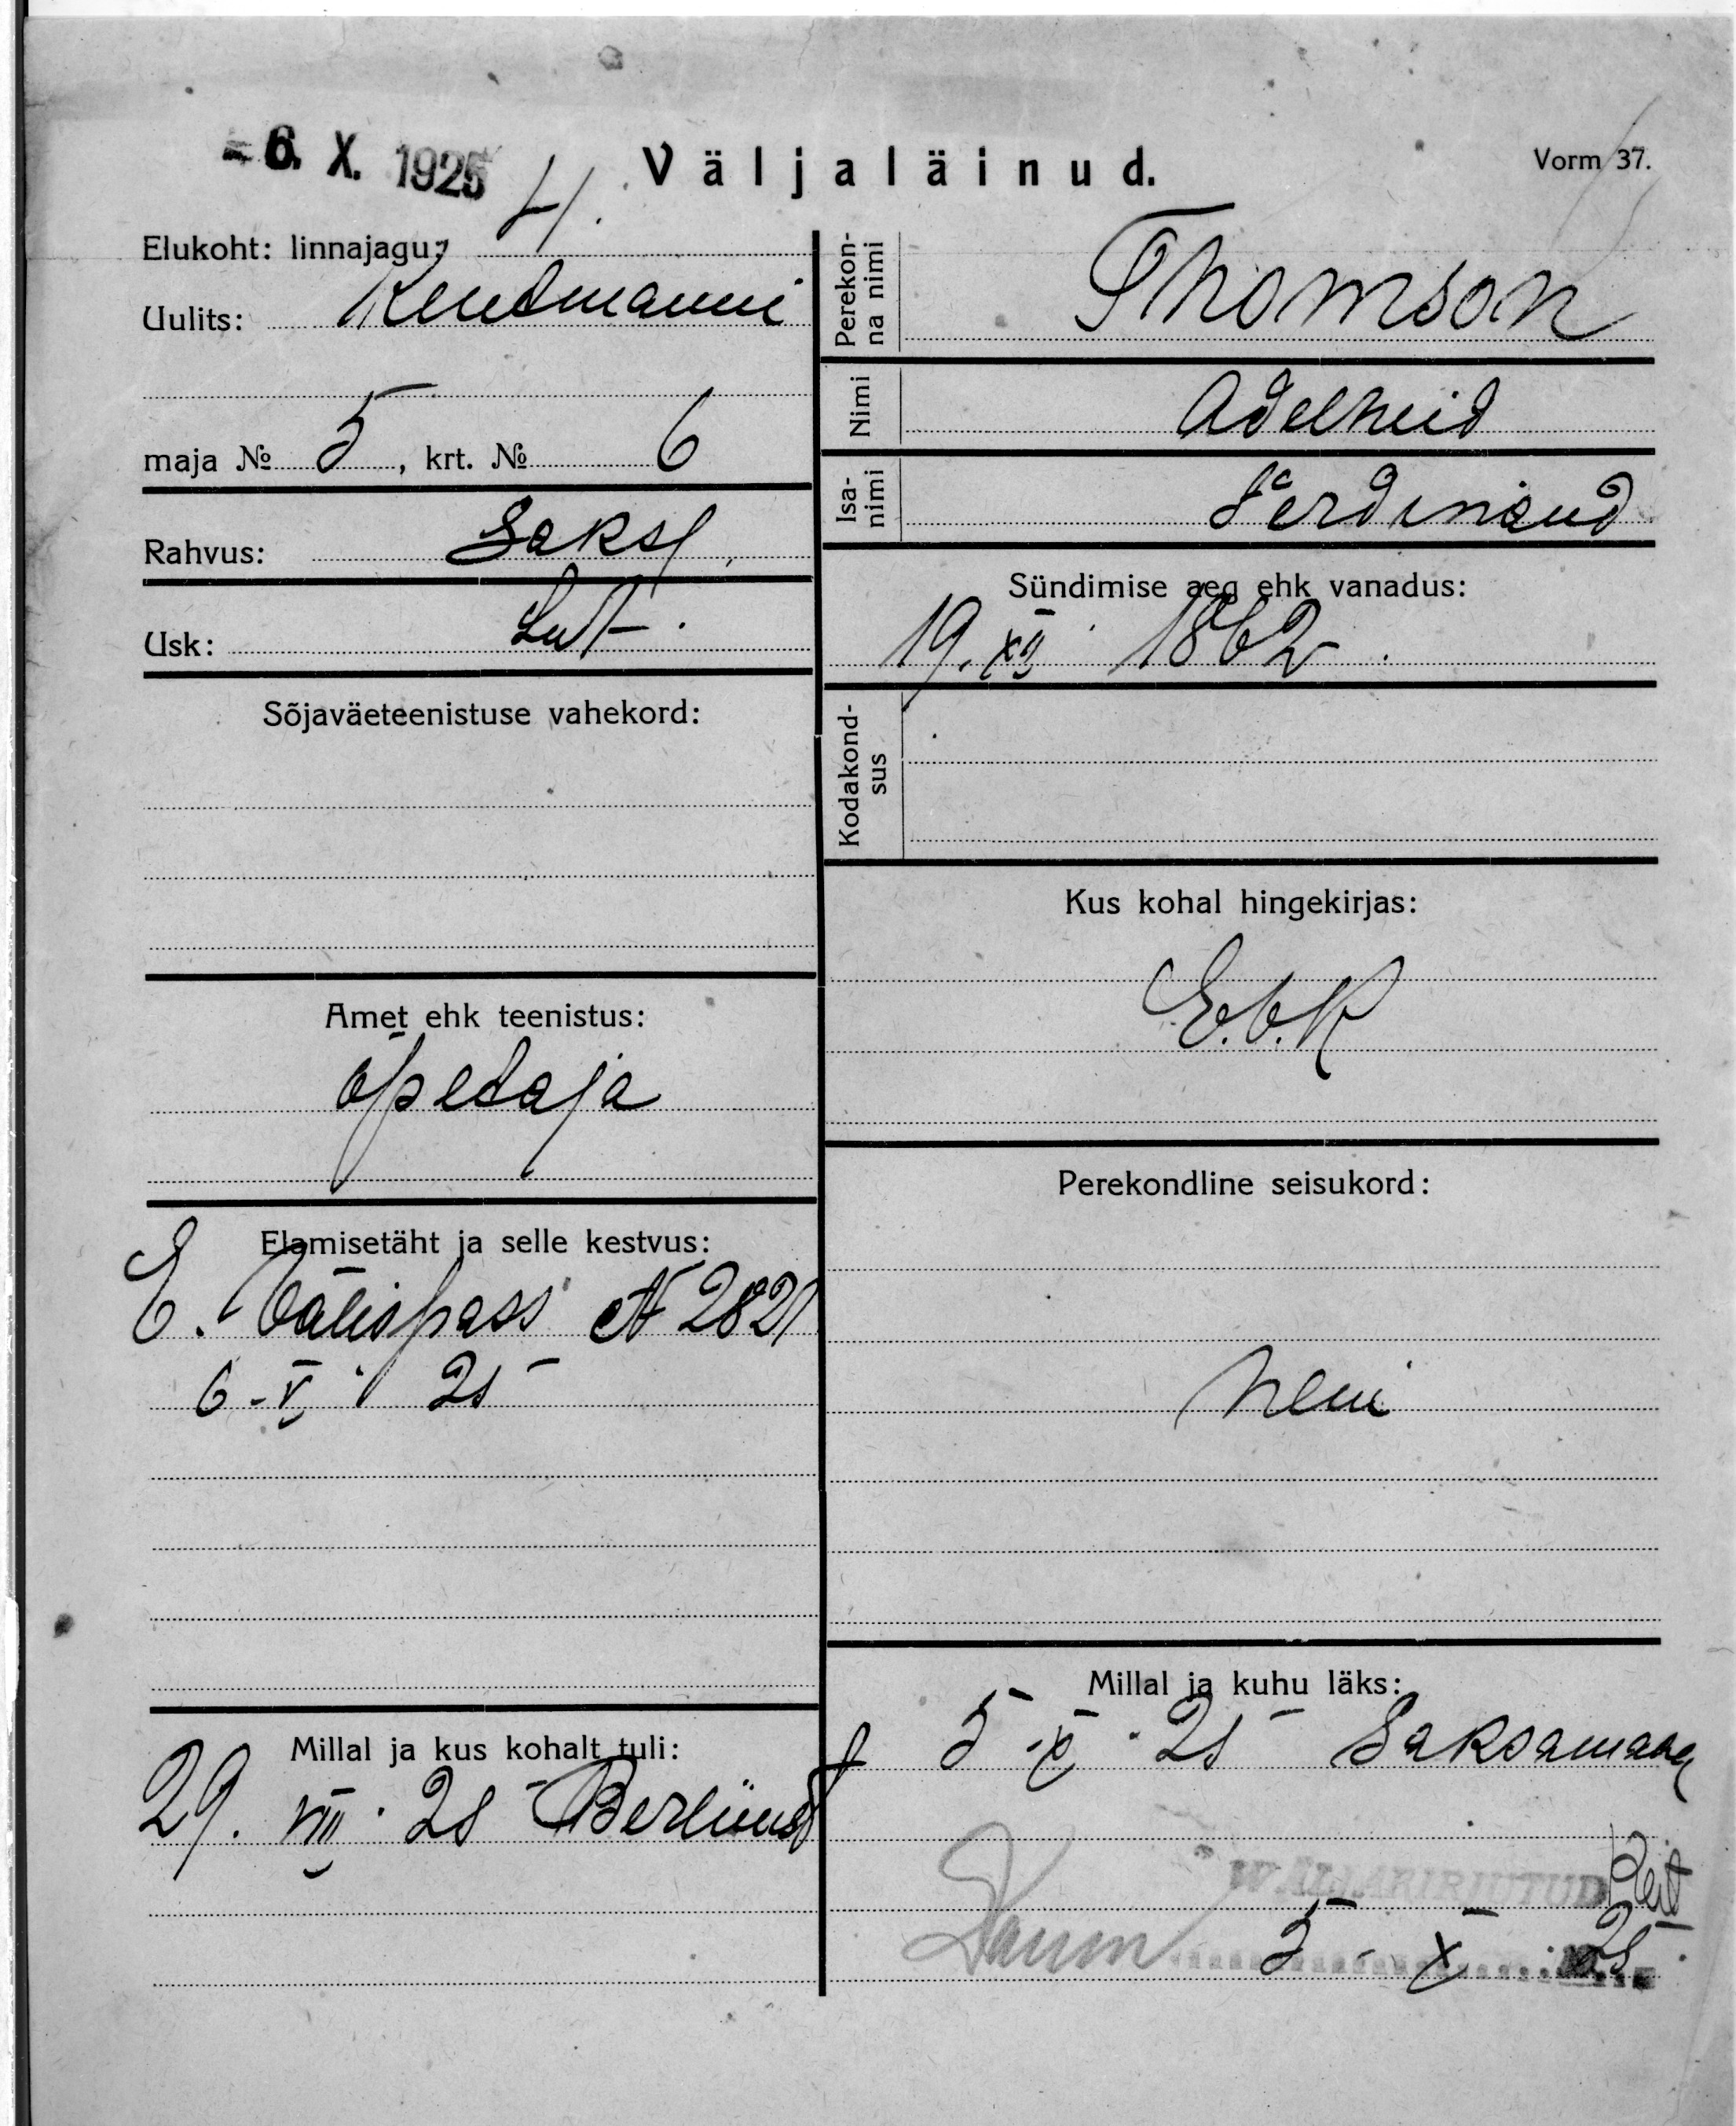 - 6. X. 1925
Väljaläinud.
Vorm 37.
Elukoht: linnajagu: 4.
Uulits: Kentmanni
maja № 5, krt. № 6
Rahvus: Saksl.
Usk: Lut.
Sõjaväeteenistuse vahekord:
Amet ehk teenistus:
õpetaja
Elamisetäht ja selle kestvus:
E. Välispass № 2821
6-V. 25
Millal ja kus kohalt tuli:
29. VIII. 25 Berliinist
Perekon-
na nimi
Thomson
Nimi
Adelheid
Isa-
nimi
Ferdinand
Sündimise aeg ehk vanadus:
19. XII 1862.
Kodakond-
sus
Kus kohal hingekirjas:
E.V.K
Perekondline seisukord:
neiu
Millal ja kuhu läks:
5-X. 25 Saksamaa
WÄLJAKIRJUTUD
5 - X 25.